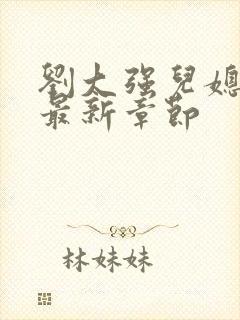 劉太强兒媳
最新章節
林妹妹